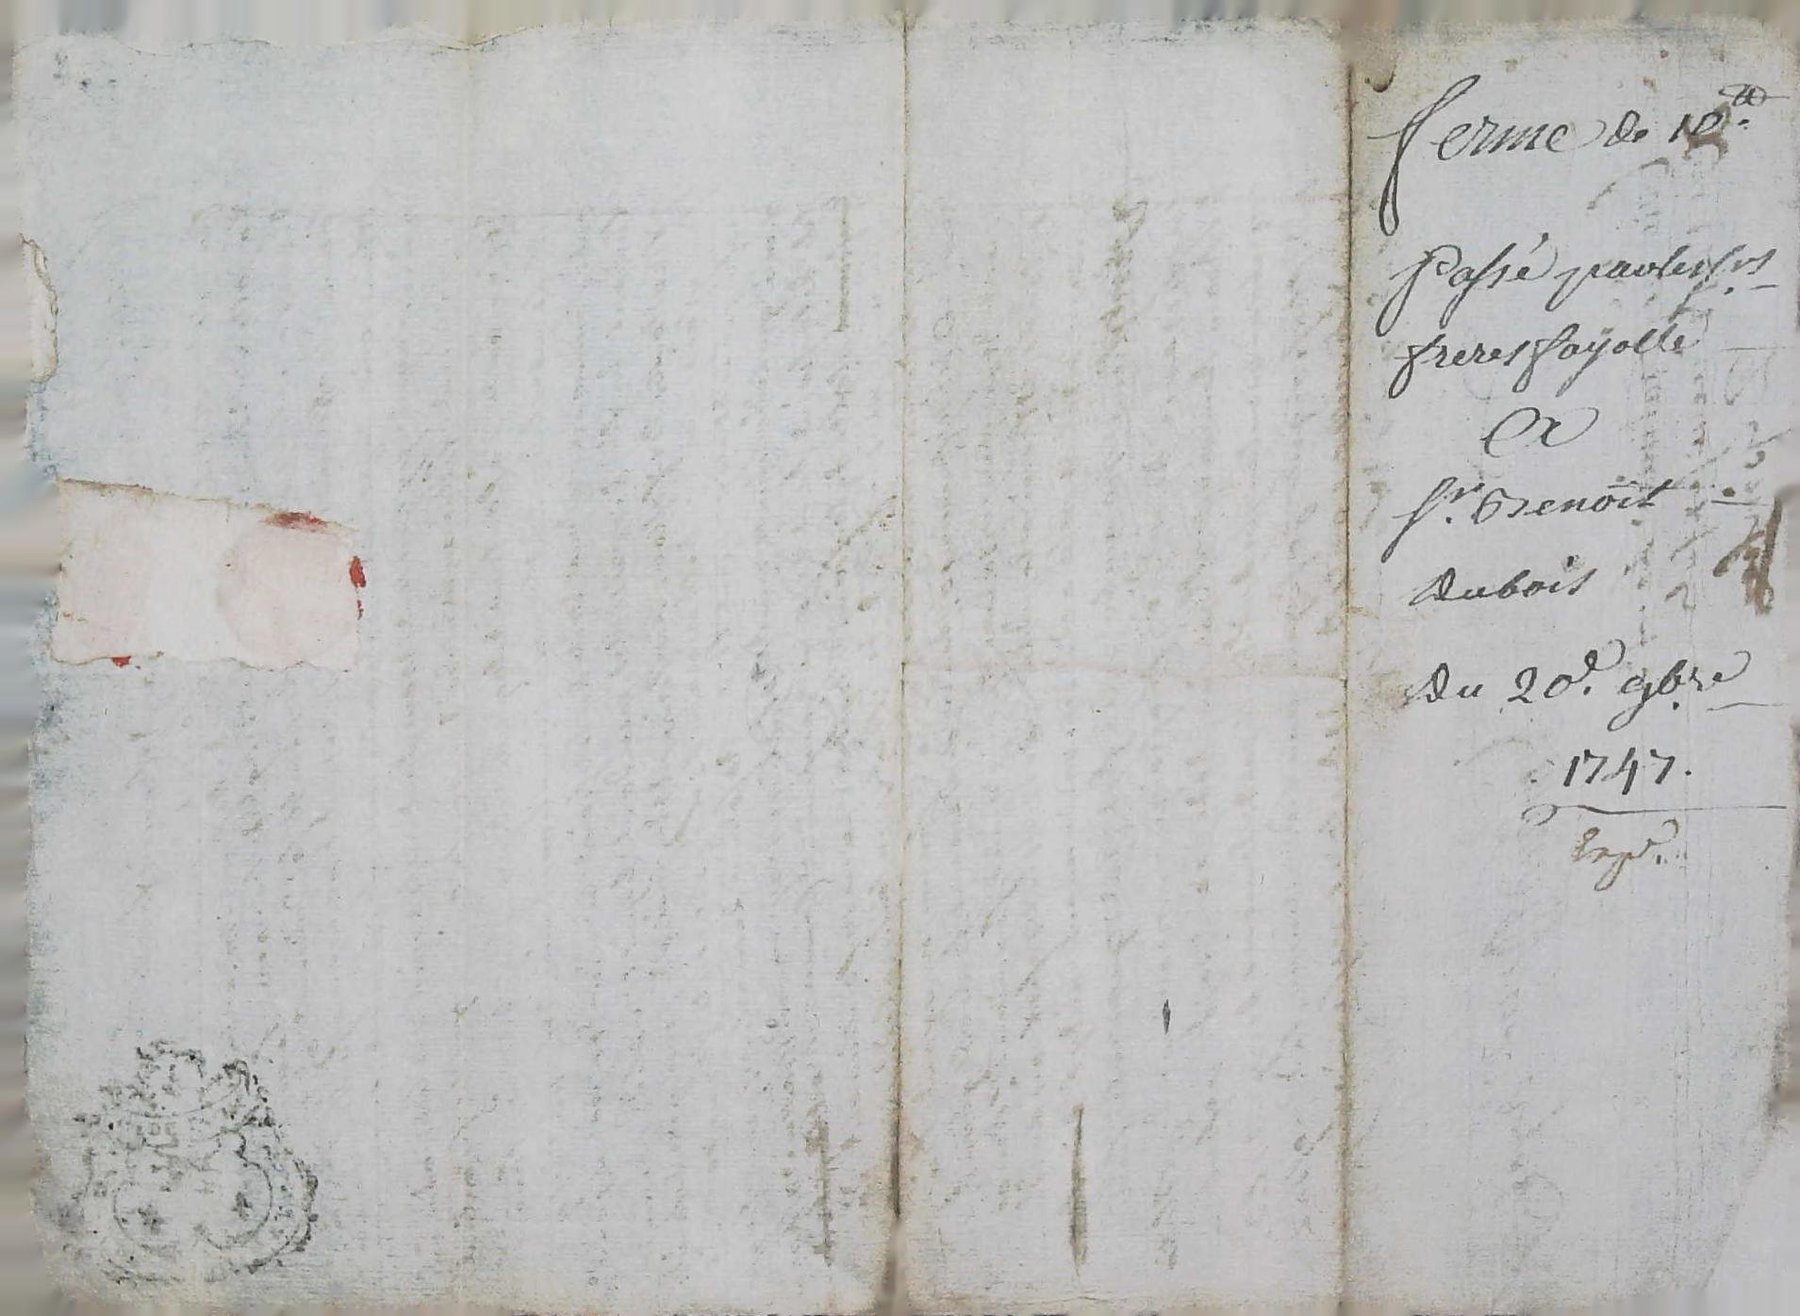 ferme de 10.tt
Passé par les srs
freres fayolle
A
Sr. Benoit
Dubois
Du 20e. 9bre
1747.